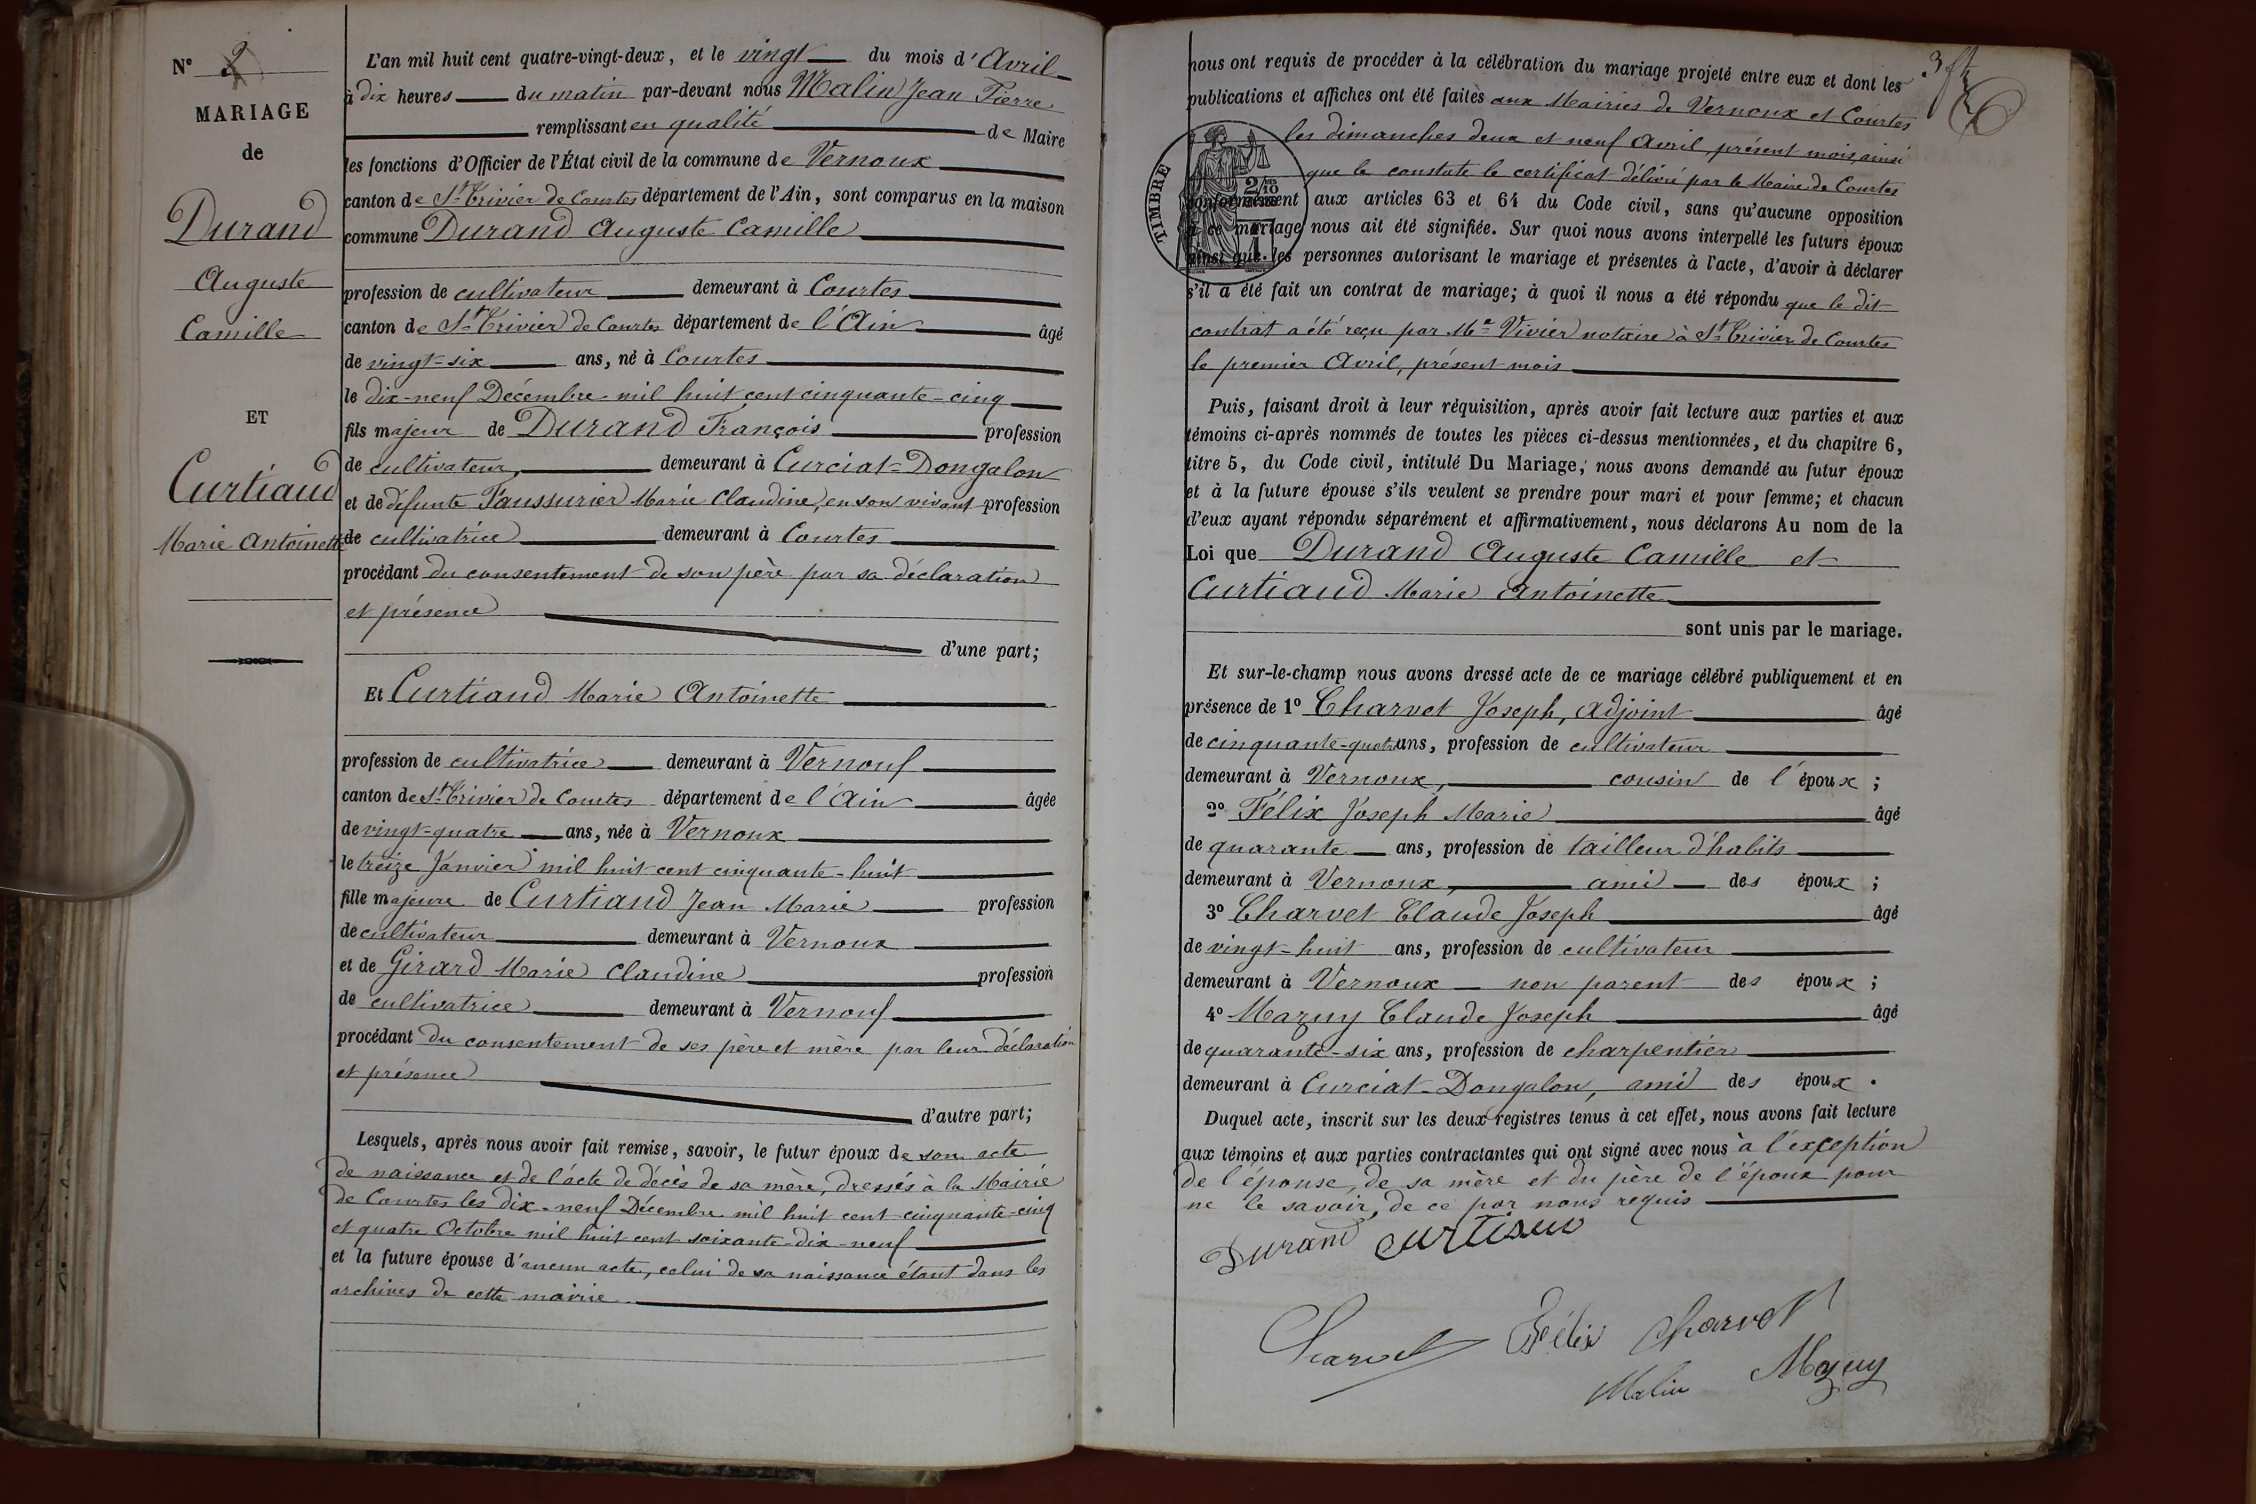 N° 2
MARIAGE
de
Durand
Auguste
Camille
ET
Curtiaud
Marie Antoinette
L'an mil huit cent quatre-vingt-deux, et le vingt du mois d'Avril
à dix heures du matin par-devant nous Malin Jean Pierre
remplissant en qualité de Maire
les fonctions d'Officier de l'État civil de la commune de Vernoux
canton de St Trivier de Courtes département de l'Ain, sont comparus en la maison
commune Durand Auguste Camille
profession de cultivateur demeurant à Courtes
canton de St Trivier de Courtes département de l'Ain âgé
de vingt-six ans, né à Courtes
le dix-neuf Décembre mil huit cent cinquante-cinq
fils majeur de Durand François profession
de cultivateur, demeurant à Curciat-Dongalon
et de défunte Faussurier Marie Claudine, en son vivant profession
de cultivatrice demeurant à Courtes
procédant du consentement de son père par sa déclaration
et présence
d'une part;
Et Curtiaud Marie Antoinette
profession de cultivatrice demeurant à Vernoux
canton de St Trivier de Courtes département de l'Ain âgée
de vingt-quatre ans, née à Vernoux
le treize Janvier mil huit cent cinquante-huit
fille majeure de Curtiaud Jean Marie profession
de cultivateur demeurant à Vernoux
et de Girard Marie Claudine profession
de cultivatrice demeurant à Vernoux
procédant du consentement de ses père et mère par leur déclaration
et présence
d'autre part;
Lesquels, après nous avoir fait remise, savoir, le futur époux de son acte
de naissance et de l'acte de décès de sa mère, dressés à la Mairie
de Courtes les dix-neuf Décembre mil huit cent cinquante-cinq
et quatre Octobre mil huit cent soixante-dix-neuf
et la future épouse d'aucun acte, celui de sa naissance étant dans les
archives de cette mairie.
nous ont requis de procéder à la célébration du mariage projeté entre eux et dont les
publications et affiches ont été faites aux Mairies de Vernoux et Courtes
les dimanches deux et neuf Avril, présent mois, ainsi
que le constate le certificat délivré par le Maire de Courtes
TIMBRE
2/10
conformément aux articles 63 et 64 du Code civil, sans qu'aucune opposition
à ce mariage nous ait été signifiée. Sur quoi nous avons interpellé les futurs époux
ainsi que les personnes autorisant le mariage et présentes à l'acte, d'avoir à déclarer
s'il a été fait un contrat de mariage; à quoi il nous a été répondu que le dit
contrat a été reçu par Me Vivier notaire à St Trivier de Courtes
le premier Avril, présent mois
Puis, faisant droit à leur réquisition, après avoir fait lecture aux parties et aux
témoins ci-après nommés de toutes les pièces ci-dessus mentionnées, et du chapitre 6,
titre 5, du Code civil, intitulé Du Mariage, nous avons demandé au futur époux
et à la future épouse s'ils veulent se prendre pour mari et pour femme; et chacun
d'eux ayant répondu séparément et affirmativement, nous déclarons Au nom de la
Loi que Durand Auguste Camille et
Curtiaud Marie Antoinette
sont unis par le mariage.
Et sur-le-champ nous avons dressé acte de ce mariage célébré publiquement et en
présence de 1° Charvet Joseph, adjoint âgé
de cinquante-quatre ans, profession de cultivateur
demeurant à Vernoux, cousin de l'époux;
2° Félix Joseph Marie âgé
de quarante ans, profession de tailleur d'habits
demeurant à Vernoux, ami des époux;
3° Charvet Claude Joseph âgé
de vingt-huit ans, profession de cultivateur
demeurant à Vernoux non parent des époux;
4° Mazuy Claude Joseph âgé
de quarante-six ans, profession de charpentier
demeurant à Curciat-Dongalon, ami des époux.
Duquel acte, inscrit sur les deux registres tenus à cet effet, nous avons fait lecture
aux témoins et aux parties contractantes qui ont signé avec nous à l'exception
de l'épouse, de sa mère et du père de l'époux pour
ne le savoir, de ce par nous requis
Durand Curtiaud
Charvet Félix Charvet
Malin Mazuy